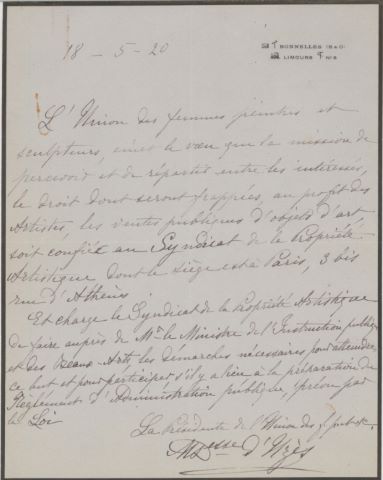 BONNELLES (S & O)
LIMOURS T N° 8
18 - 5 - 20
L'Union des femmes peintres et
sculpteurs, émet le vœu que la mission de
percevoir et de répartir entre les intéressés,
le droit dont seront frappées, au profit des
Artistes, les ventes publiques d'objets d'art,
soit confiée au Syndicat de la Propriété
Artistique dont le siège est à Paris, 3 bis
rue d'Athènes
Et charge le Syndicat de la Propriété Artistique
de faire auprès de Mr le Ministre de l'Instruction publique
et des Beaux-Arts les démarches nécessaires pour atteindre
ce but et pour participer s'il y a lieu à la préparation du
Règlement d'Administration publique, prévu par
la Loi
La Présidente de l'Union des f. p. et sc.
Dsse d'Uzès